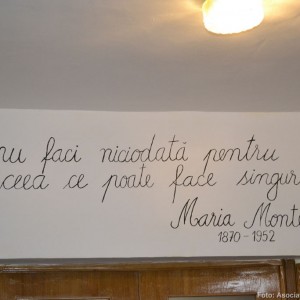 nu faci niciodată pentru
ceea ce poate face singur
Maria Monte
1870 - 1952
Foto: Asocia